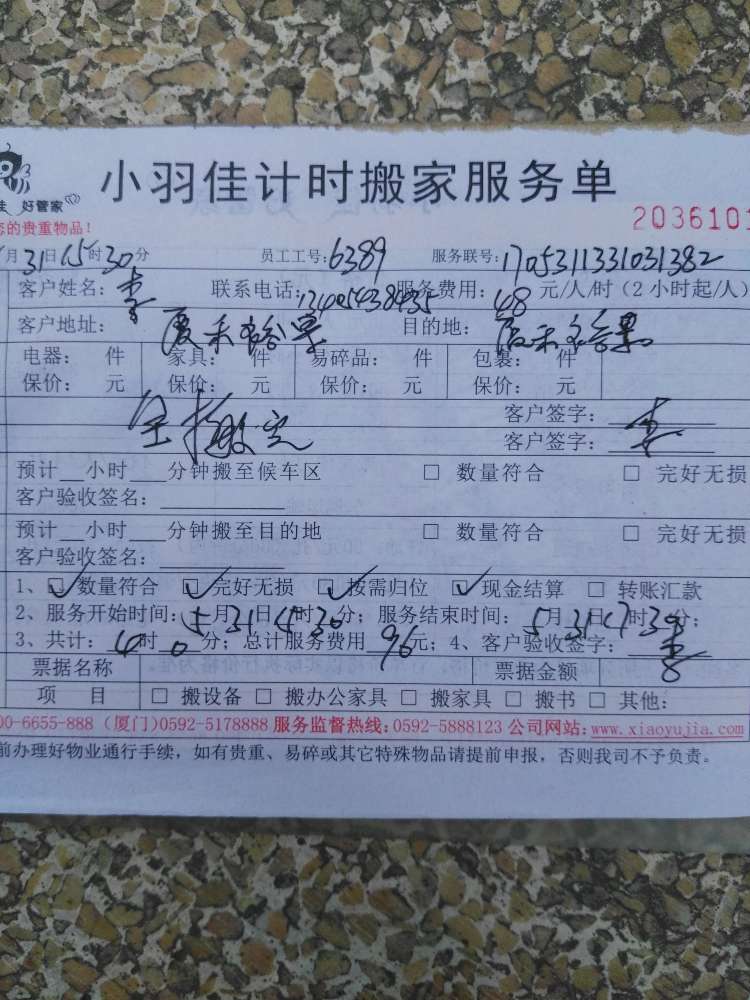 好管家
小羽佳计时搬家服务单
您的贵重物品!
2036101
月31日15时30分 员工工号:6389 服务联号:1705311331031382
客户姓名:李 联系电话: 服务费用:48元/人/时(2小时起/人)
客户地址:厦禾裕景 目的地:厦禾裕景
电器: 件 家具: 件 易碎品: 件 包裹: 件
保价: 元 保价: 元 保价: 元 保价: 元
客户签字:
全部搬完 客户签字:李
预计__小时___分钟搬至候车区 □ 数量符合 □ 完好无损
客户验收签名:
预计__小时___分钟搬至目的地 □ 数量符合 □ 完好无损
客户验收签名:
1、☑数量符合 ☑完好无损 ☑按需归位 ☑现金结算 □ 转账汇款
2、服务开始时间:5月31日15时30分;服务结束时间:5月31日17时30分;
3、共计:4时0分;总计服务费用96元;4、客户验收签字:李
票据名称 票据金额
项 目 □ 搬设备 □ 搬办公家具 □ 搬家具 □ 搬书 □ 其他:
00-6655-888(厦门)0592-5178888 服务监督热线:0592-5888123 公司网站:www.xiaoyujia.com
前办理好物业通行手续,如有贵重、易碎或其它特殊物品请提前申报,否则我司不予负责。